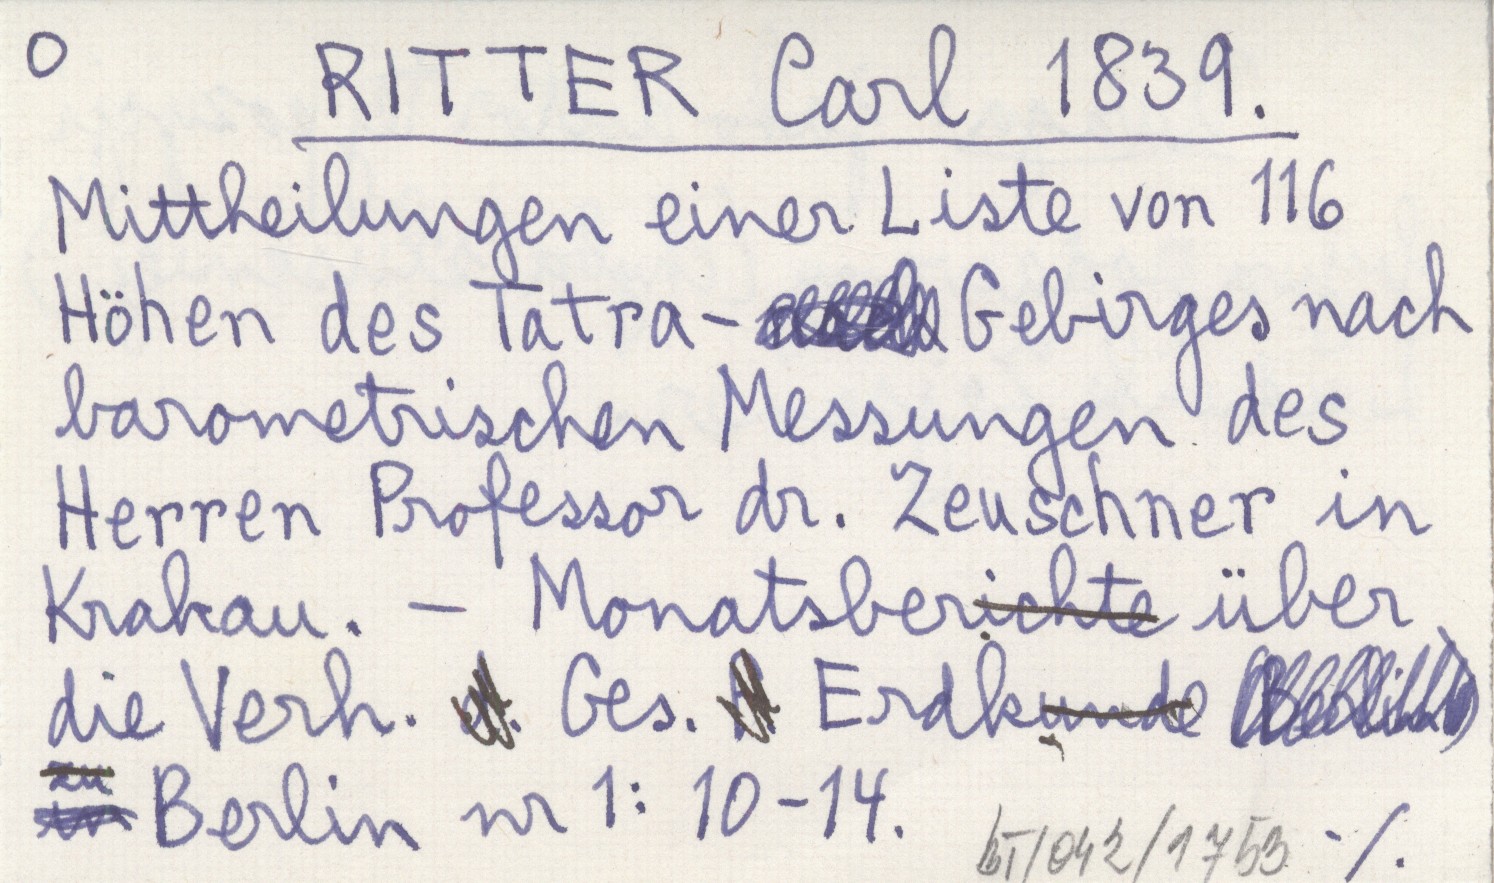 O RITTER Carl 1839.
Mittheilungen einer Liste von 116
Höhen des Tatra- Gebirges nach
barometrischen Messungen des
Herren Professor dr. Zeuschner in
Krakau. – Monatsberichte über
die Verh. Ges. Erdkunde
zu Berlin nr 1: 10-14.
BT/042/1753 ·/.